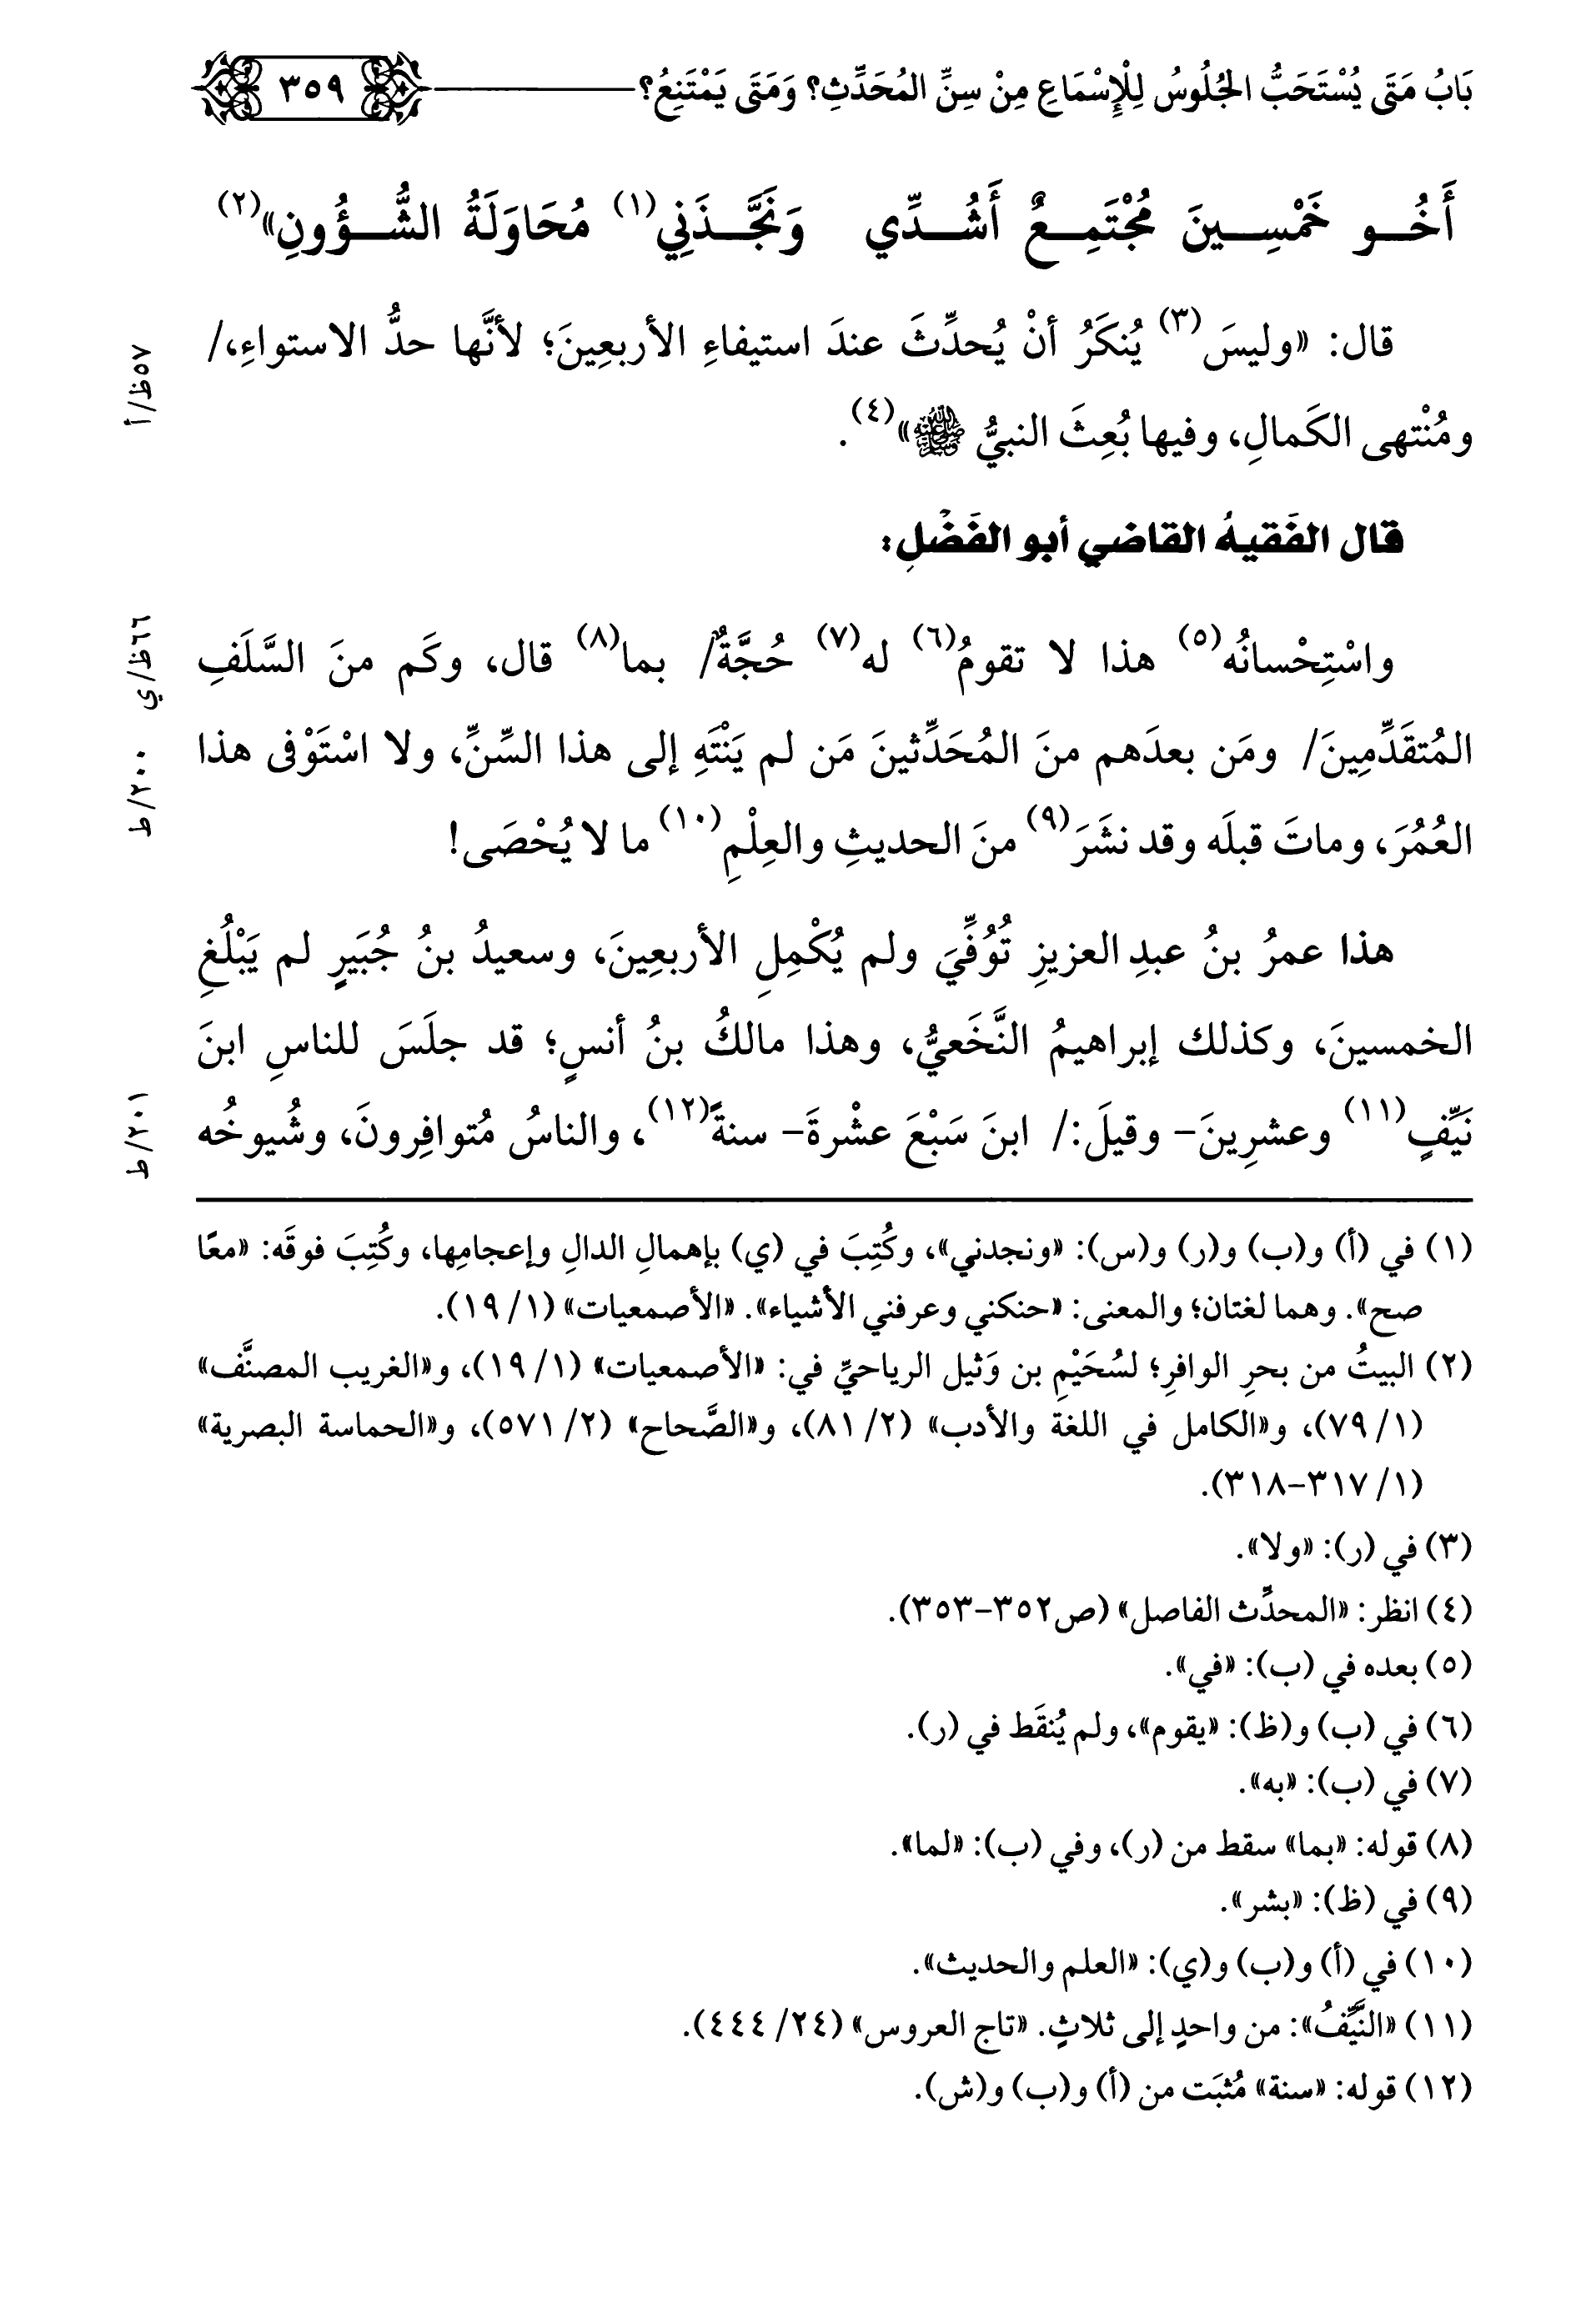 بَابُ مَتَى يُسْتَحَبُّ الجُلُوسُ لِلْإِسْمَاعِ مِنْ سِنِّ المُحَدِّثِ؟ وَمَتَى يَمْتَنِعُ؟ ٣٥٩
أَخُـو خَمْسِـينَ مُجْتَمِـعٌ أَشُـدِّي وَنَجَّـذَنِي(١) مُحَاوَلَةُ الشُّـؤُونِ»(٢)
قال: «وليسَ(٣) يُنكَرُ أنْ يُحدِّثَ عندَ استيفاءِ الأربعِينَ؛ لأنَّها حدُّ الاستواءِ،/
٥٧ظ/أ
ومُنْتهى الكَمالِ، وفيها بُعِثَ النبيُّ ﷺ»(٤).
قال الفَقيهُ القاضي أبو الفَضْلِ:
واسْتِحْسانُه(٥) هذا لا تقومُ(٦) له(٧) حُجَّةٌ/ بما(٨) قال، وكَم منَ السَّلَفِ
٦٦ظ/ي
المُتقَدِّمِينَ/ ومَن بعدَهم منَ المُحَدِّثينَ مَن لم يَنْتَهِ إلى هذا السِّنِّ، ولا اسْتَوْفى هذا
٢٠٠/ط
العُمُرَ، وماتَ قبلَه وقد نشَرَ(٩) منَ الحديثِ والعِلْمِ(١٠) ما لا يُحْصَى!
هذا عمرُ بنُ عبدِ العزيزِ تُوُفِّيَ ولم يُكْمِلِ الأربعِينَ، وسعيدُ بنُ جُبَيرٍ لم يَبْلُغِ
الخمسينَ، وكذلك إبراهيمُ النَّخَعيُّ، وهذا مالكُ بنُ أنسٍ؛ قد جلَسَ للناسِ ابنَ
نَيِّفٍ(١١) وعشرِينَ- وقيلَ:/ ابنَ سَبْعَ عشْرةَ- سنةً(١٢)، والناسُ مُتوافِرونَ، وشُيوخُه
٢٠١/ط
(١) في (أ) و(ب) و(ر) و(س): «ونجدني»، وكُتِبَ في (ي) بإهمالِ الدالِ وإعجامِها، وكُتِبَ فوقَه: «معًا
صح». وهما لغتان؛ والمعنى: «حنكني وعرفني الأشياء». «الأصمعيات» (١/ ١٩).
(٢) البيتُ من بحرِ الوافرِ؛ لسُحَيْمِ بن وَثيل الرياحيِّ في: «الأصمعيات» (١/ ١٩)، و«الغريب المصنَّف»
(١/ ٧٩)، و«الكامل في اللغة والأدب» (٢/ ٨١)، و«الصَّحاح» (٢/ ٥٧١)، و«الحماسة البصرية»
(١/ ٣١٧-٣١٨).
(٣) في (ر): «ولا».
(٤) انظر: «المحدِّث الفاصل» (ص٣٥٢-٣٥٣).
(٥) بعده في (ب): «في».
(٦) في (ب) و(ظ): «يقوم»، ولم يُنقَط في (ر).
(٧) في (ب): «به».
(٨) قوله: «بما» سقط من (ر)، وفي (ب): «لما».
(٩) في (ظ): «بشر».
(١٠) في (أ) و(ب) و(ي): «العلم والحديث».
(١١) «النَّيِّفُ»: من واحدٍ إلى ثلاثٍ. «تاج العروس» (٢٤/ ٤٤٤).
(١٢) قوله: «سنة» مُثبَت من (أ) و(ب) و(ش).